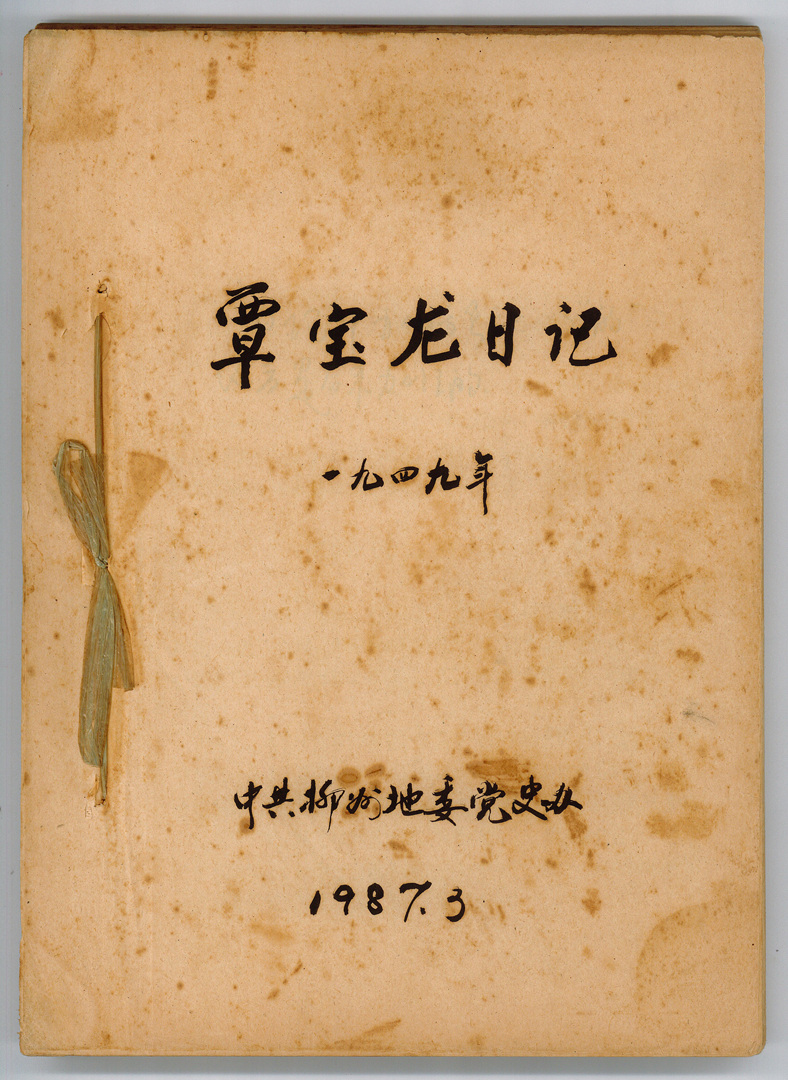 覃宝龙日记
一九四九年
中共柳州地委党史办
1987.3